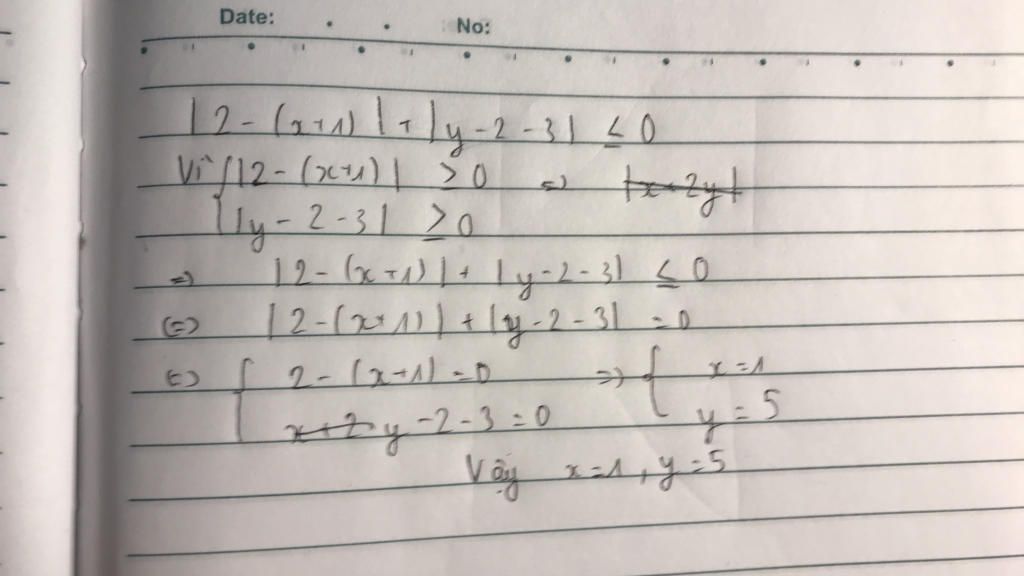 Date: No:
|2-(x+1)|+|y-2-3| ≤ 0
Vì {|2-(x+1)| ≥ 0 =>
{|y-2-3| ≥ 0
=> |2-(x+1)|+|y-2-3| ≤ 0
<=> |2-(x+1)|+|y-2-3| =0
<=> { 2-(x+1)=0 => { x=1
y-2-3=0 y=5
Vậy x=1, y=5